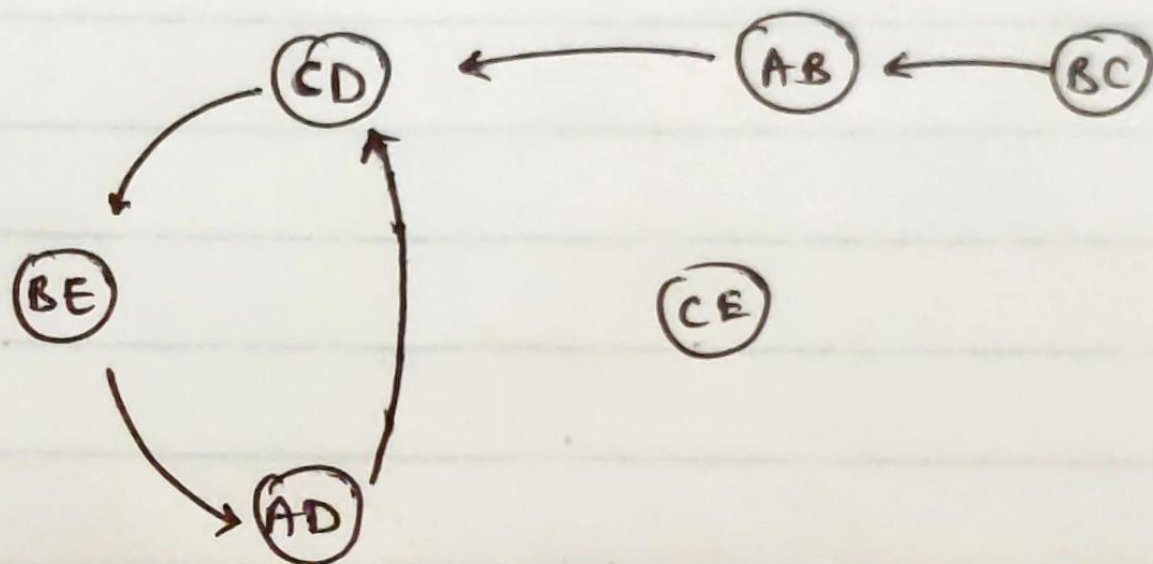 CD AB BC
BE CE
AD